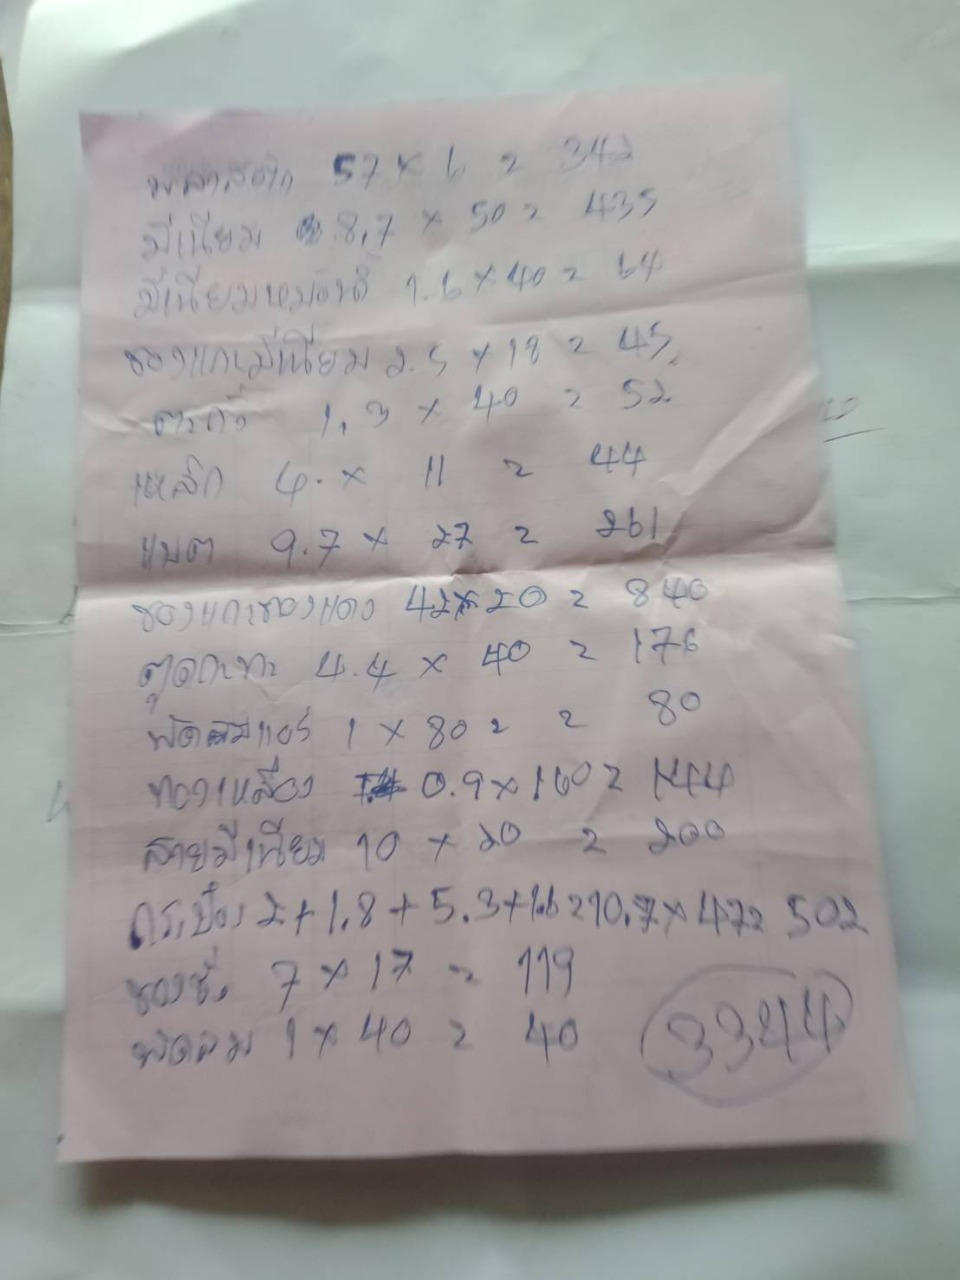 พลาสติก 57 × 6 = 342
มีเนียม 8,7 × 50 = 435
มีเนียมหม้อหุงข้าว 1.6 × 40 = 64
ของแกะมีเนียม 2.5 × 18 = 45
ตะกั่ว 1,3 × 40 = 52
เหล็ก 4. × 11 = 44
แบต 9.7 × 27 = 261
ของแกะทองแดง 42×20 = 840
ตูดกะทะ 4.4 × 40 = 176
พัดลมแอร์ 1 × 80 = = 80
ทองเหลือง 0.9×160 = 144
สายมีเนียม 10 × 20 = 200
กระป๋อง 2+1.8+5.3+1.6=10.7×47= 502
ของชั่ง 7 × 17 = 119
พัดลม 1 × 40 = 40
3344